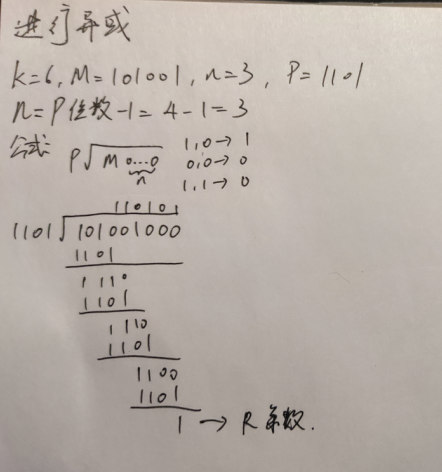 进行异或
k=6, M=101001, n=3, P=1101
n=P位数-1=4-1=3
公式: P√M 0...0 1,0→1
n 0,0→0
1,1→0
110101
1101√101001000
1101
1110
1101
1110
1101
1100
1101
1→R 余数.